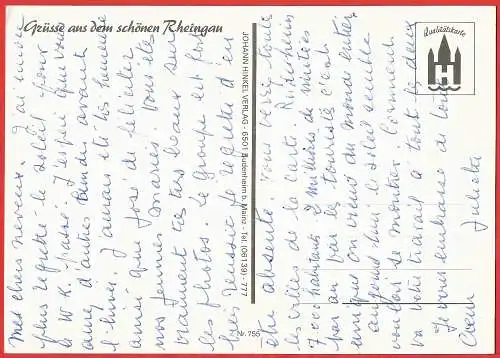 Grüsse aus dem schönen Rheingau
Mes chers neveux. J'ai
plus regretté le soleil pour
le W.K. passé. J'espère que vous
d'autres avant
l'hiver. été très heureuse
ainsi que José de féliciter
nos jeunes mariés. Vous êtes
vraiment très beaux sur
les photos. Le groupe est fort
bien réussi. Je regrette d'en
JOHANN HINKEL VERLAG - 6501 Budenheim b. Mainz - Tel. (06139) - 777
Nr. 755
être absente. Vous verrez toute
les de la carte. Rüdesheim
7000 habitants 3 millions de visites
par an par les touristes c'est
unique on vient du monde entier
aujourd'hui le soleil semble
vouloir se montrer. Comment
va votre travail à tout deux
Je vous embrasse de tout
cœur Juliette
Qualitätskarte
H